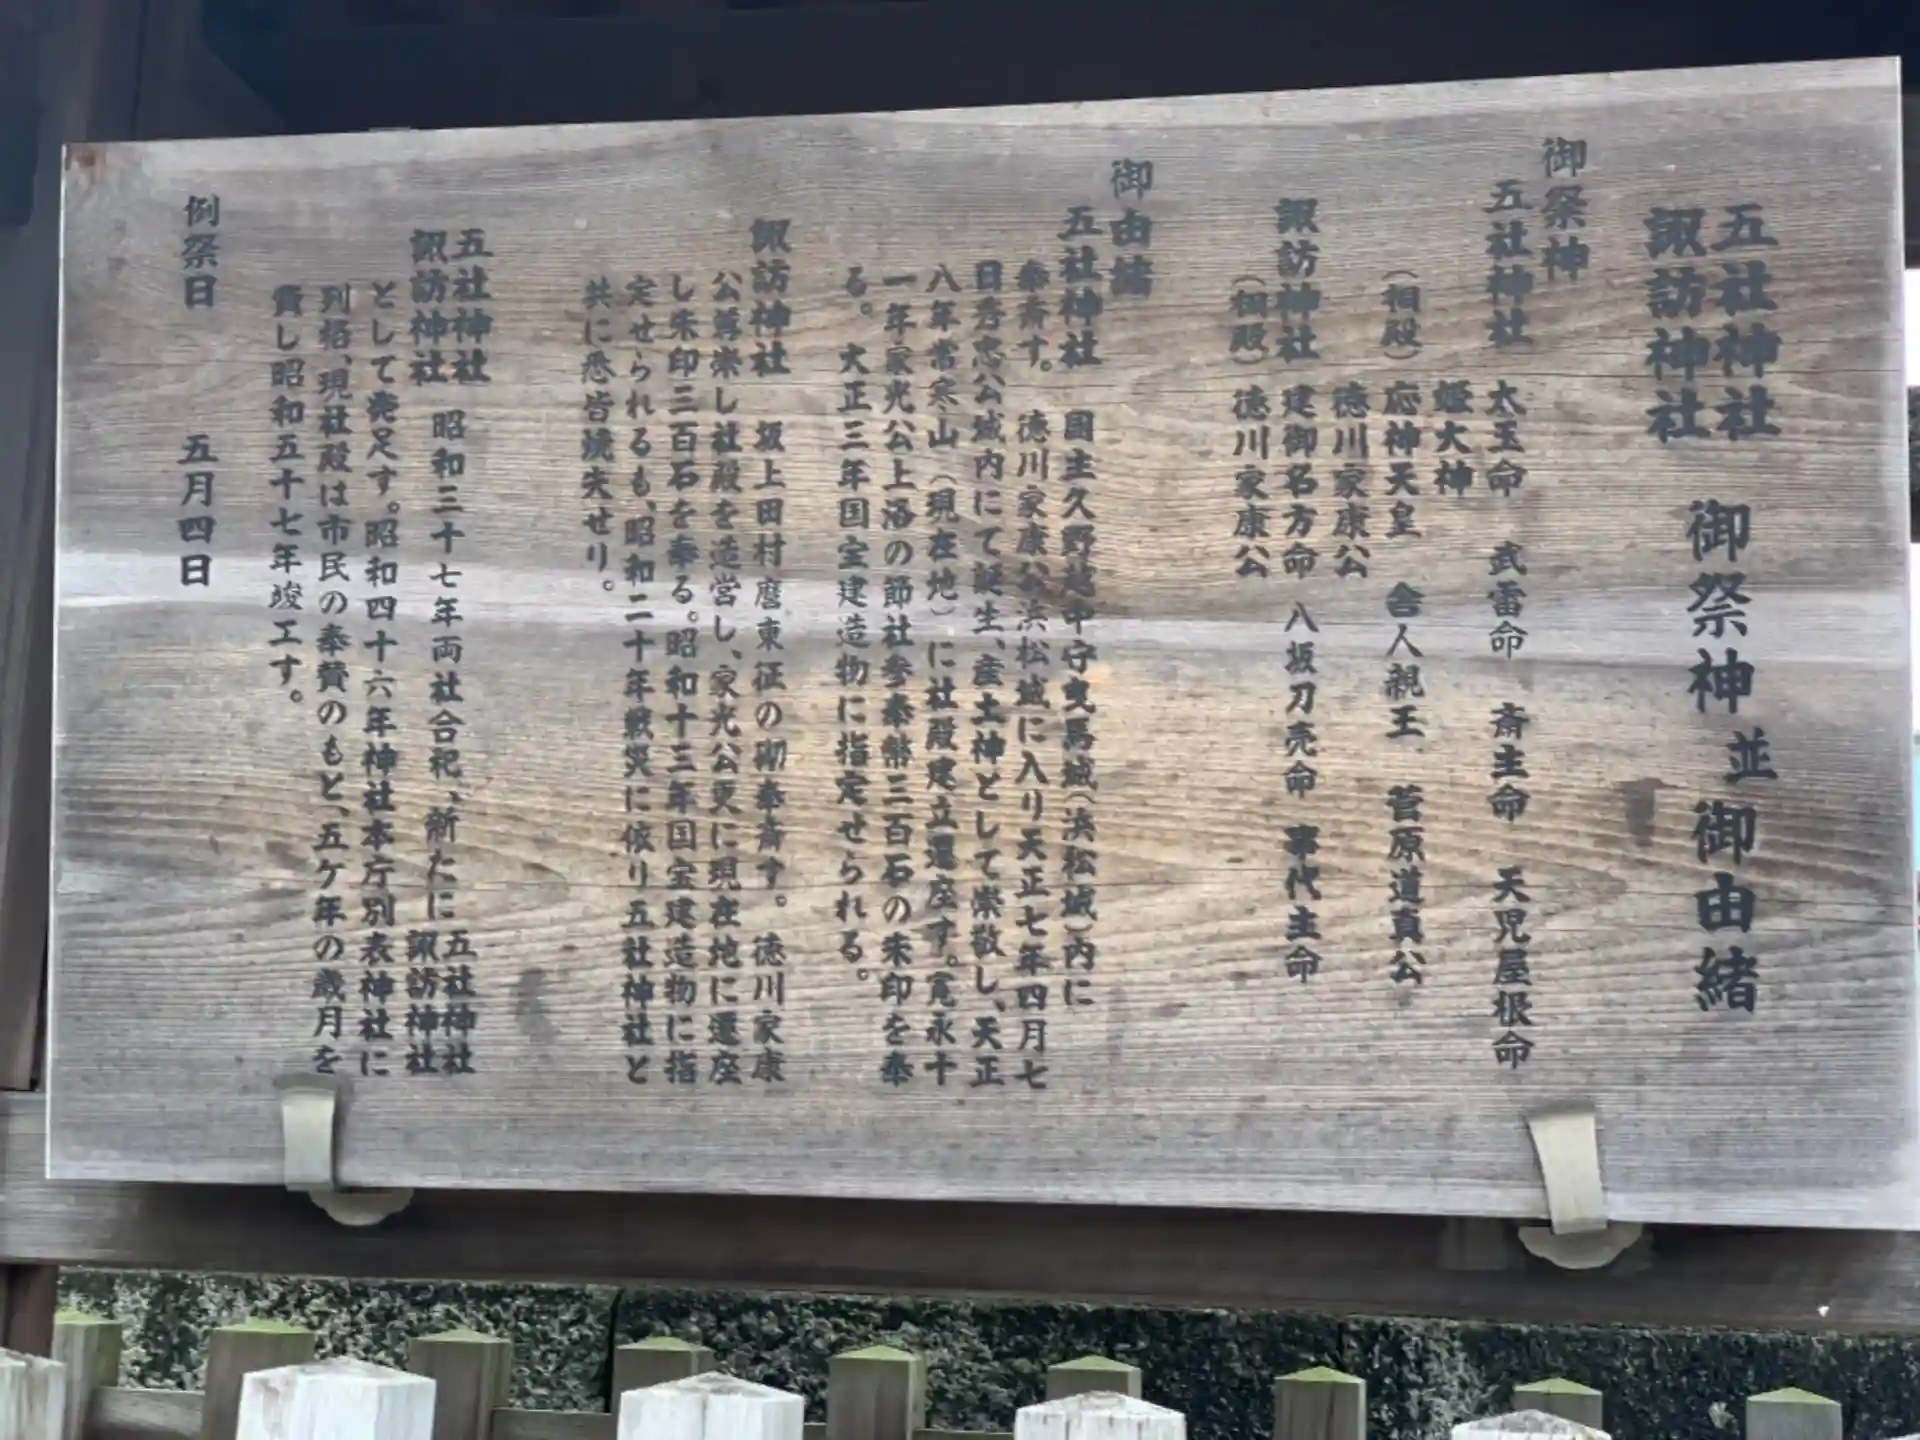 五社神社
諏訪神社 御祭神並御由緒
御祭神
五社神社 太玉命 武雷命 斎主命 天児屋根命
姫大神
(相殿) 応神天皇 舎人親王 菅原道真公
徳川家康公
諏訪神社 建御名方命 八坂刀売命 事代主命
(相殿) 徳川家康公
御由緒
五社神社 国主久野越中守曳馬城(浜松城)内に
奉斉す。 徳川家康公浜松城に入り天正七年四月七
日秀忠公城内にて誕生、産土神として崇敬し、天正
八年常寒山(現在地)に社殿建立還座す。寛永十
一年家光公上洛の節社参奉幣三百石の朱印を奉
る。 大正三年国宝建造物に指定せられる。
諏訪神社 坂上田村麿東征の砌奉斎す。 徳川家康
公尊崇し社殿を造営し、家光公更に現在地に遷座
し朱印三百石を奉る。昭和十三年国宝建造物に指
定せられるも、昭和二十年戦災に依り五社神社と
共に悉皆焼失せり。
五社神社
諏訪神社 昭和三十七年両社合祀、新たに五社神社
諏訪神社
として発足す。昭和四十六年神社本庁別表神社に
列格、現社殿は市民の奉賛のもと、五ケ年の歳月を
費し昭和五十七年竣工す。
例祭日 五月四日